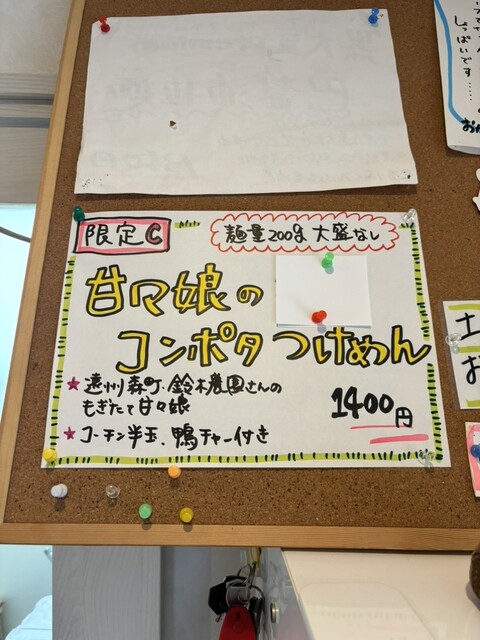 限定C
麺量200g 大盛なし
甘々娘の
コンポタ つけめん
★ 遠州森町・鈴木農園さんの
もぎたて甘々娘
★ コーチン半玉、鴨チャー付き
1400円
しっぱいです……
土
お